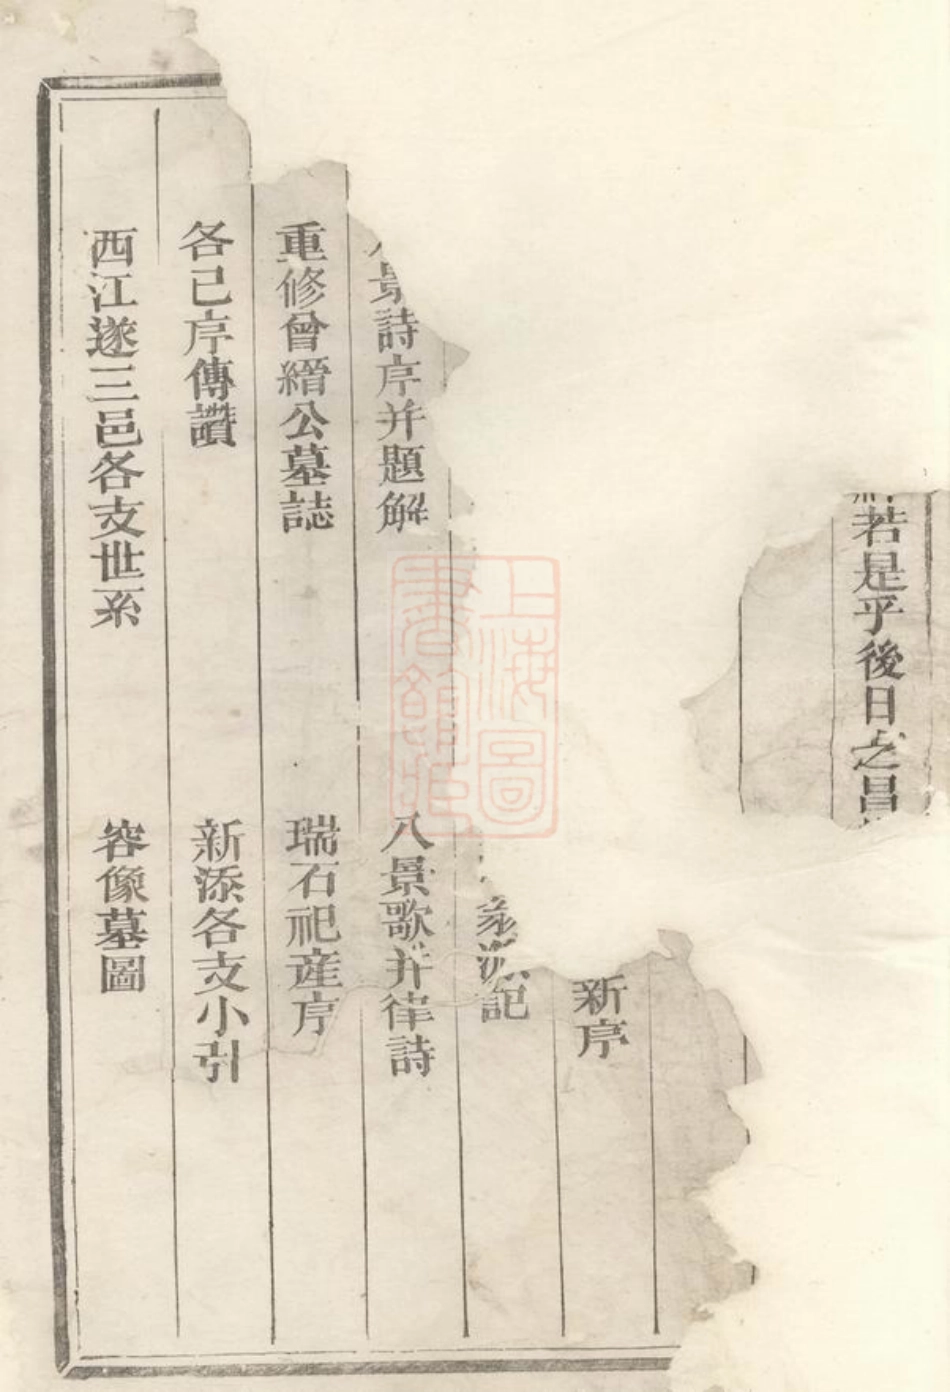 若是乎後日之昌
新序
源記
景詩序并題解
八景歌并律詩
重修曾縉公墓誌
瑞石祀産序
各已序傳讚
新添各支小引
西江遂三邑各支世系
容像墓圖
上海圖書館藏